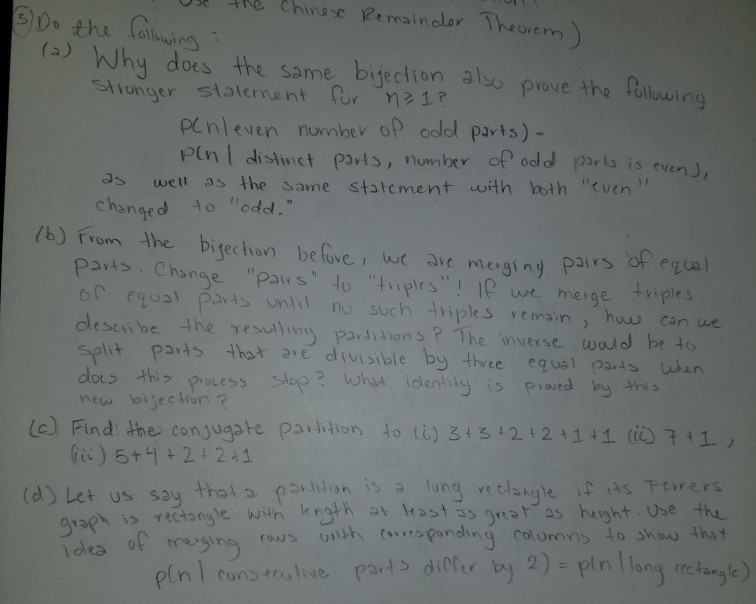 Use the Chinese Remainder Theorem)
(3) Do the following:
(a) Why does the same bijection also prove the following
stronger statement for n≥1?
P(n|even number of odd parts) =
P(n | distinct parts, number of odd parts is even),
as well as the same statement with both "even"
changed to "odd."
(b) From the bijection before, we are merging pairs of equal
parts. Change "pairs" to "triples"! If we merge triples
of equal parts until no such triples remain, how can we
describe the resulting partitions? The inverse would be to
split parts that are divisible by three equal parts. When
does this process stop? What identity is proved by this
new bijection?
(c) Find the conjugate partition to (i) 3+3+2+2+1+1 (ii) 7+1,
(iii) 5+4+2+2+1
(d) Let us say that a partition is a long rectangle if its Ferrers
graph is rectangle with length at least as great as height. Use the
idea of merging rows with corresponding columns to show that
p(n | consecutive parts differ by 2) = p(n | long rectangle)